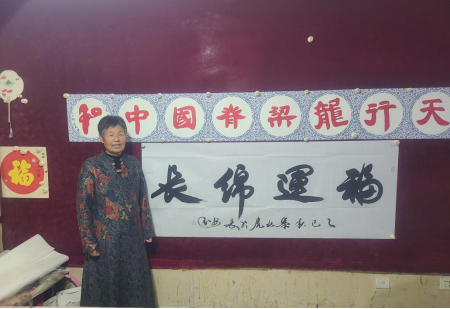 和中國脊梁龍行天
福
福運綿長
乙巳